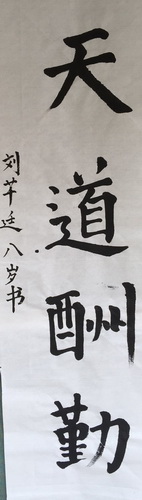 天道酬勤
刘芊廷八岁书